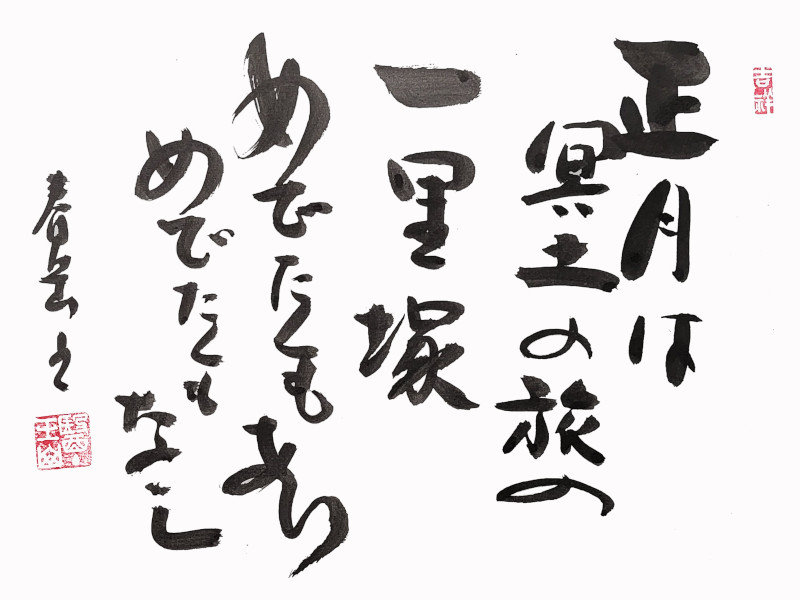 吉祥
正月は
冥土の旅の
一里塚
めでたくもあり
めでたくもなし
春岳